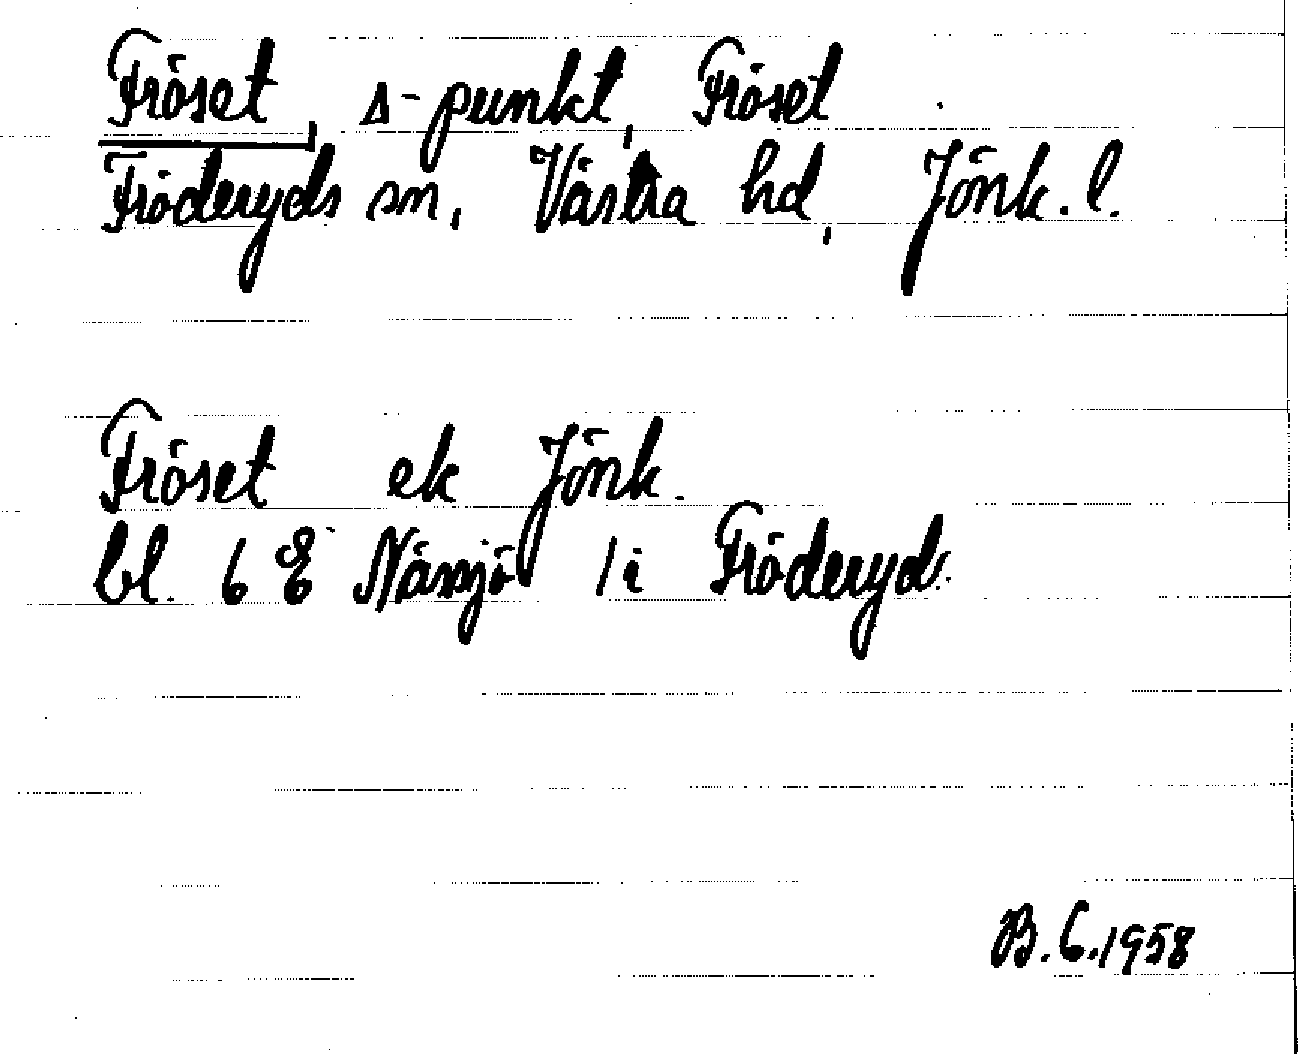 Fröset, Δ-punkt, Fröset
Fröderyds sn, Västra hd, Jönk. l.
Fröset ek Jönk.
bl. 6 E Nässjö / i Fröderyd.
B.G.1958